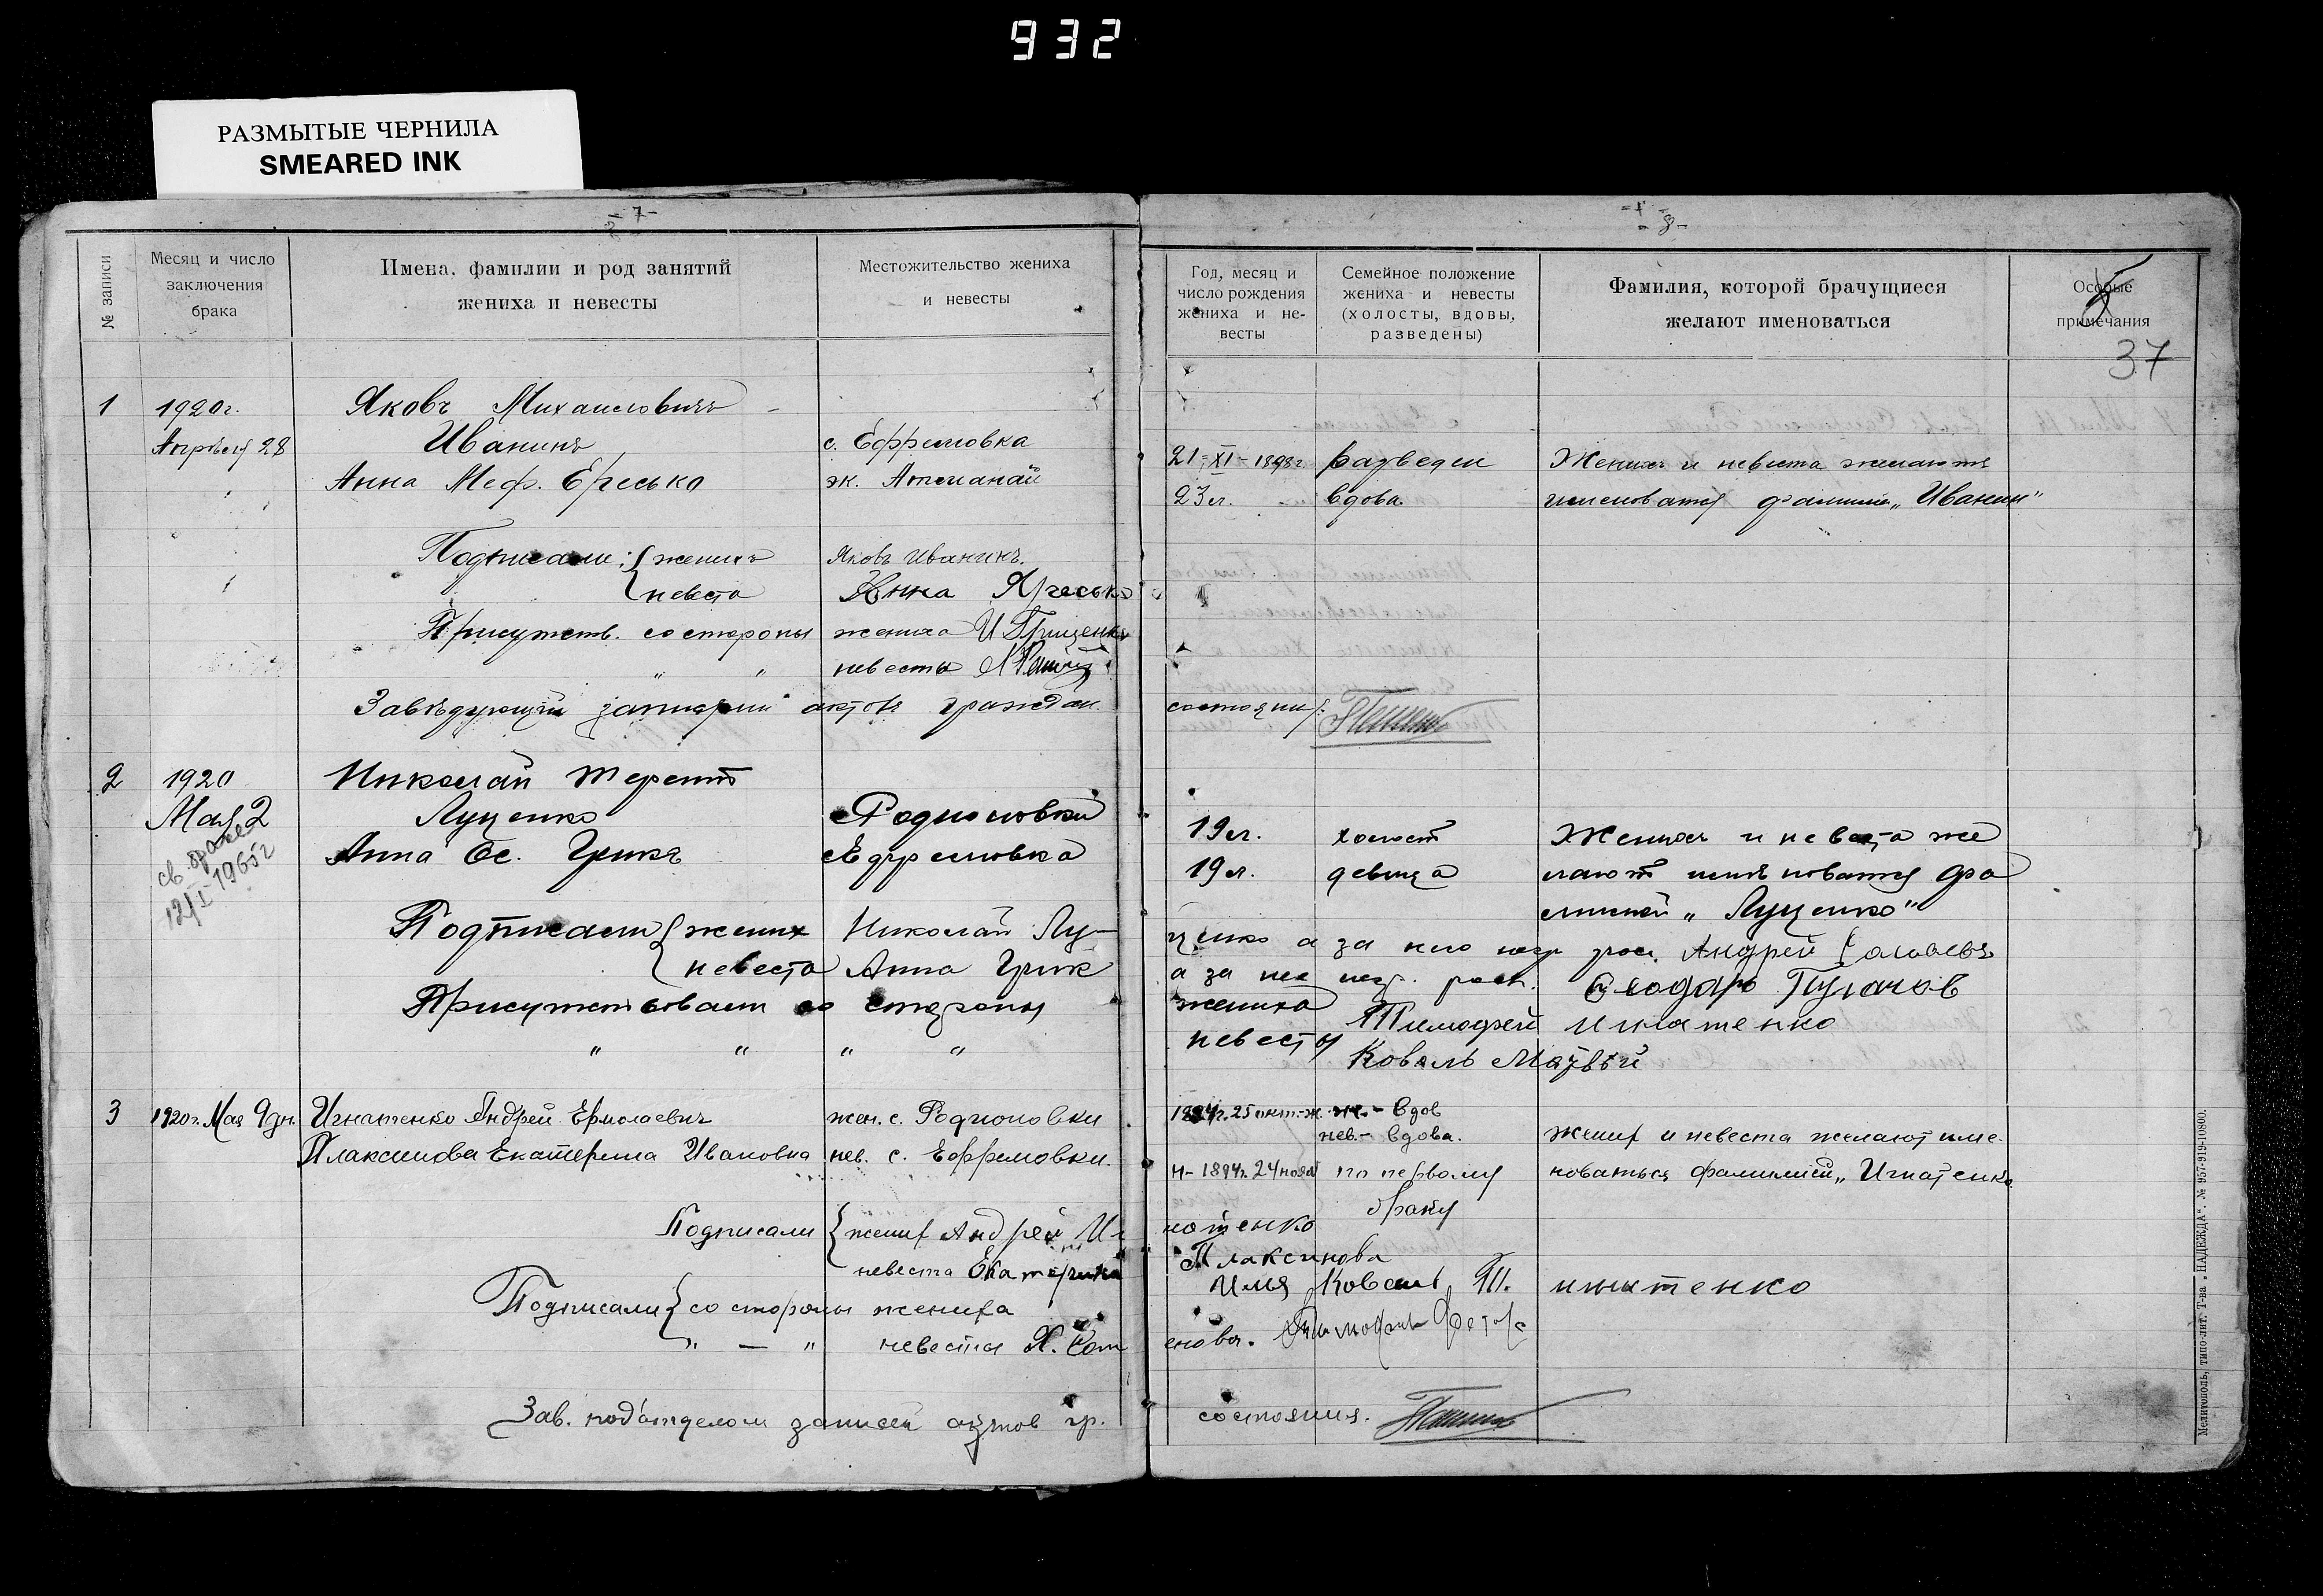 932
РАЗМЫТЫЕ ЧЕРНИЛА
SMEARED INK
- 7 -
№ записи
Месяц и число заключения брака
Имена, фамилии и род занятий жениха и невесты
Местожительство жениха и невесты
1
1920 г.
Яковъ Михаиловичъ -
Апрѣля 28
Иванинъ
с. Ефремовка
Анна Меф. Ересько
эк. Атманай
Подписали: жених
Яковъ Иванинъ.
невеста
Анна Яресько
Присутств. со стороны жениха И Грищенко
" " невесты
Завѣдующий записей актов граждан.
2
1920
Николай Терент
Мая 2
Луценко
Родионовки
Анна Ос. Грикъ
Ефремовка
св. браке
12/I-1965г
Подписали жених Николай Лу-
невеста Анна Грик
Присутствовали со стороны
" " " "
3
1920 г. Мая 9 дн.
Игнатенко Андрей Ермолаевич
жен. с. Родионовки
Плаксинова Екатерина Ивановна
нев. с. Ефремовки.
Подписали жених Андрей Иг
невеста Екатерина
Подписали со стороны жениха
" — " невесты
Зав. подотделом записей актов гр.
- 8 -
Год, месяц и число рождения жениха и невесты
Семейное положение жениха и невесты (холосты, вдовы, разведены)
Фамилия, которой брачущиеся желают именоваться
Особые примечания
37
21-XI-1898 г
разведен
Жених и невеста желают
23 л.
вдова
именоватся фамилией „Иванин"
состояния:
19 л.
холост
Жених и невеста же
19 л.
девица
лают именоватся фа
милией „Луценко"
ценко а за него негр рос. Андрей
а за нее негр. росп. Феодаръ Пугачов
жениха
Тимофей Игнатенко
невесты
Коваль Матвѣй
25 окт.-ж. ж.- вдов
нев.- вдова.
жених и невеста желают име-
н-1894г. 24 нояб
по первому
новаться фамилией „Игнатенко
браку
натенко
Плаксинова
Илья Коваль
енова.
состояния.
Мелитополь, типо-лит. Т-ва „НАДЕЖДА". № 957-919-10800.